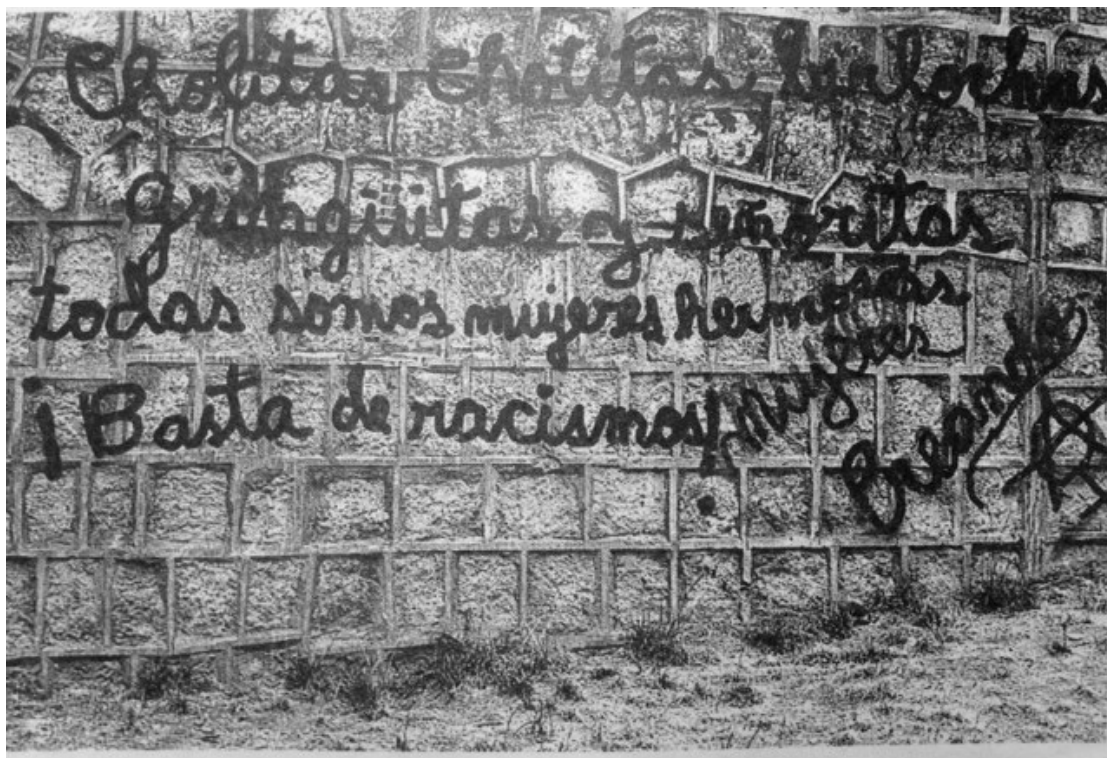 Cholitas Cholitas birlochas
gringüitas y señoritas
todas somos mujeres hermosas
¡Basta de racismos! mujeres
Creando